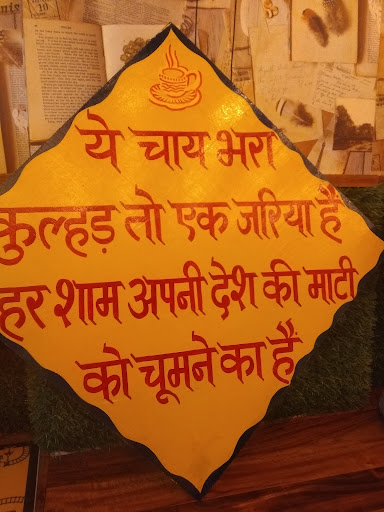 ये चाय भरा
कुल्हड़ तो एक जरिया हैं
हर शाम अपनी देश की माटी
को चूमने का हैं